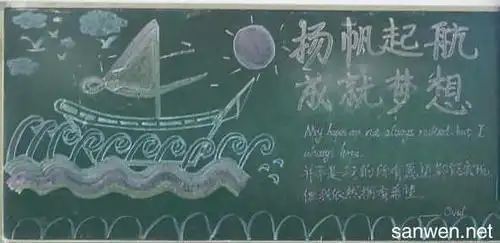 扬帆起航
成就梦想
My hopes are not always realized, but I
always hope.
并不是每次的所有愿望都能实现,
但我依然拥有希望
Ovid
sanwen.net